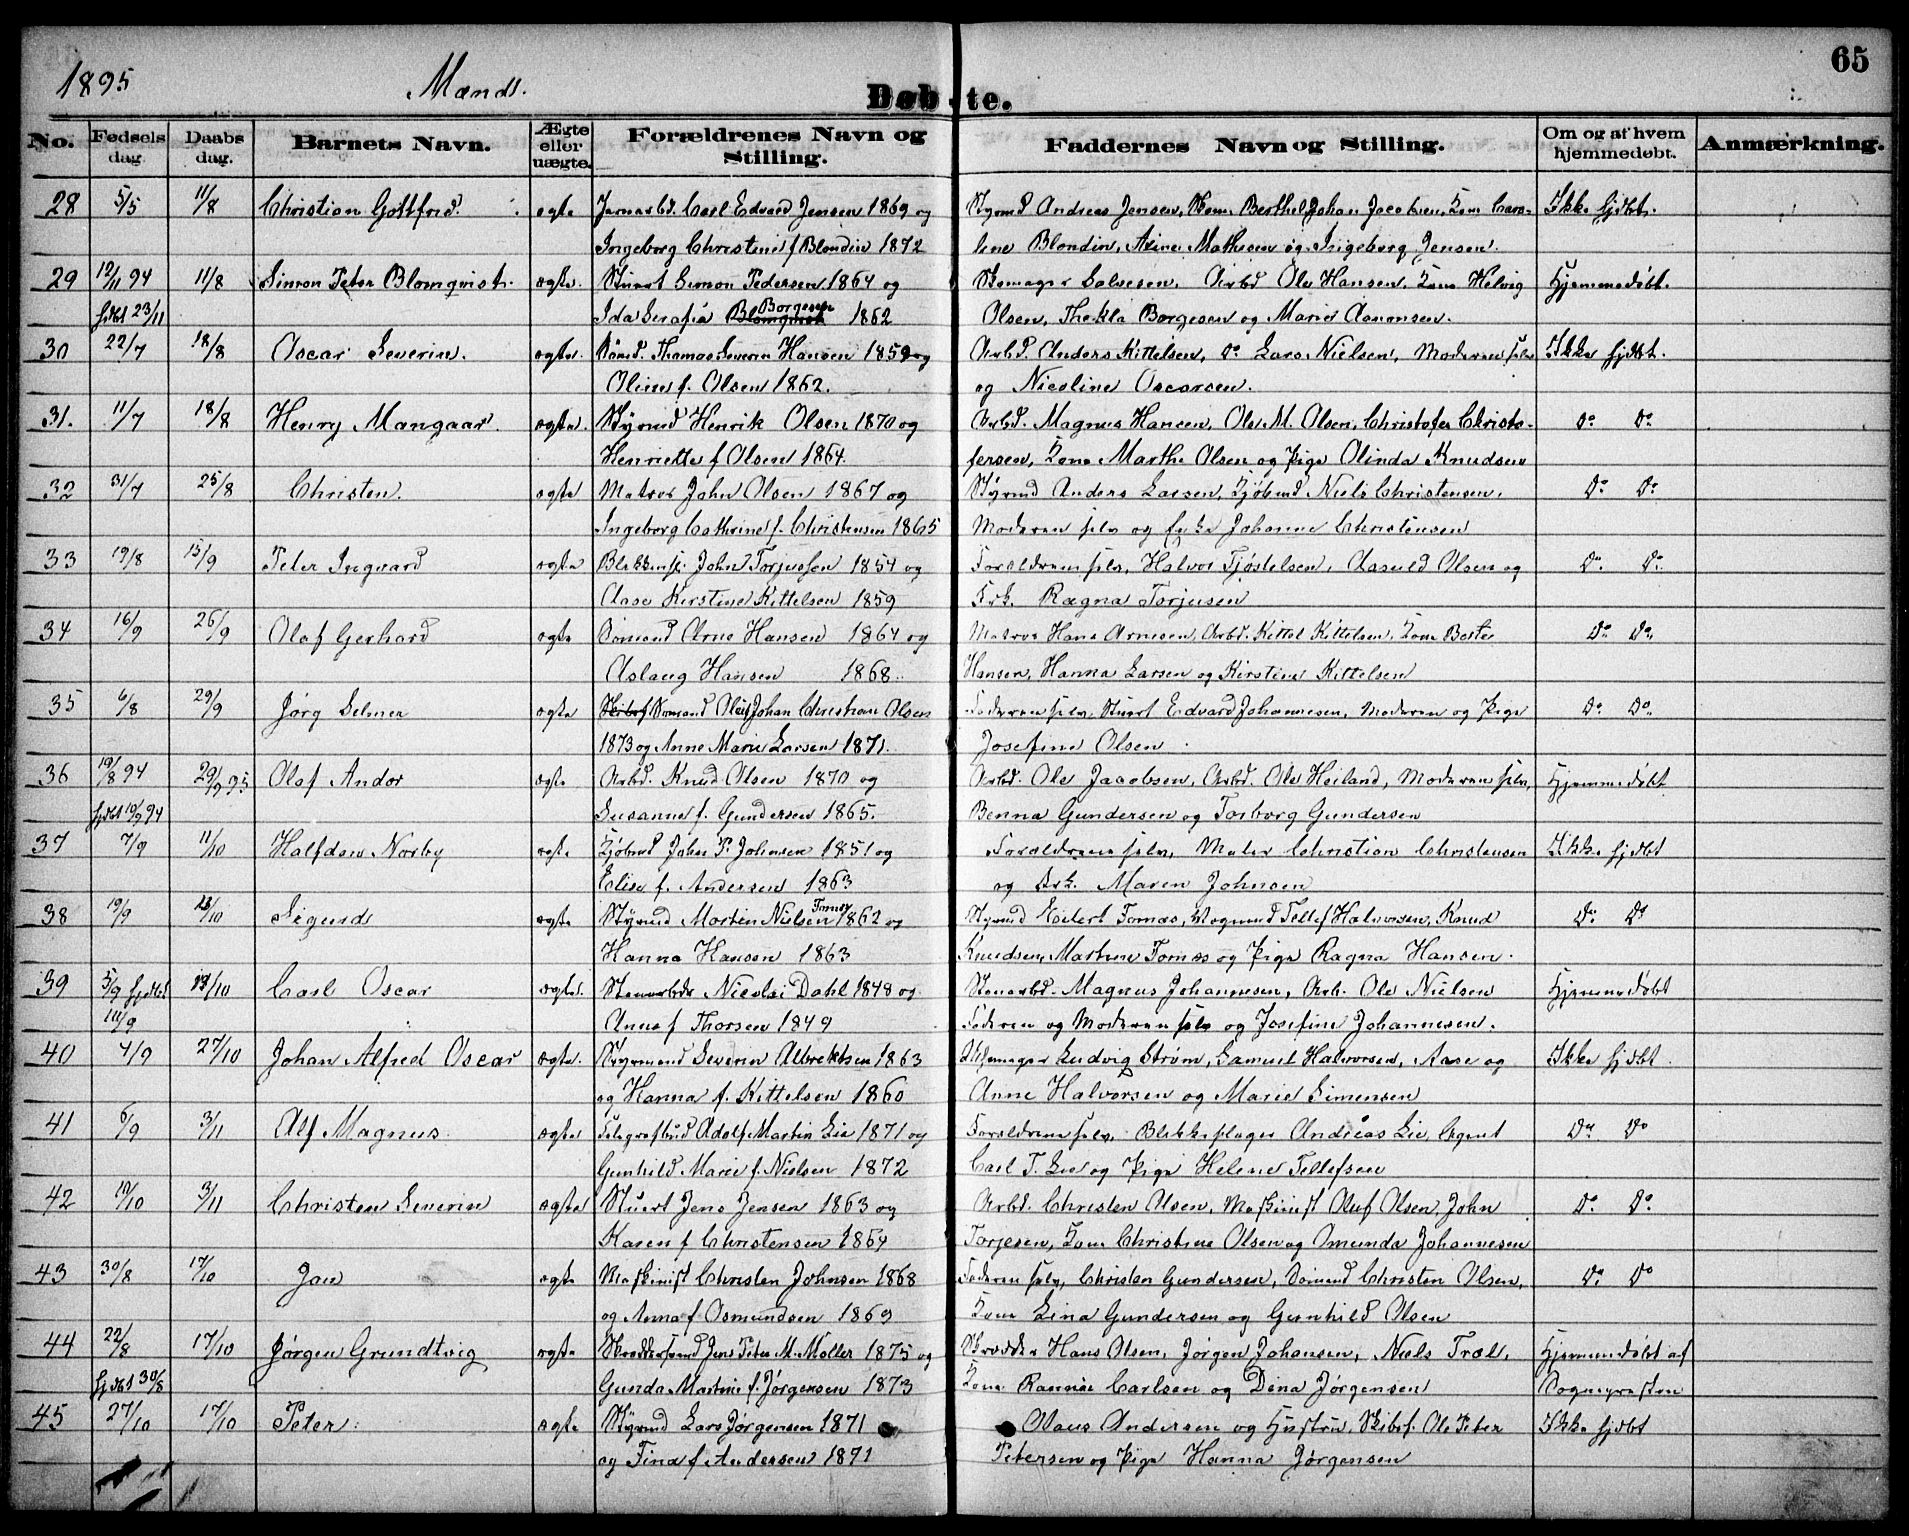 65
1895 Mænds.
Døbte.
No. Fødsels dag. Daabs dag. Barnets Navn. Ægte eller uægte. Forældrenes Navn og Stilling. Faddernes Navn og Stilling. Om og af hvem hjemmedøbt. Anmærkning.
28 5/5 11/8 Christian Gottfred. ægte Jernarbd. Carl Edvard Jensen 1869 og Styrmd Andreas Jensen, Johan Jacobsen, Kone Caro- Ikke hjdbt.
Ingeborg Christine f. Blondin 1872 line Blondin, Mathisen og Ingeborg Jensen.
29 12/11 94 11/8 Simon Peter Blomqvist. ægte. Stuert Simon Pedersen 1864 og Skomager Salvesen, Arbd Ole Hansen, Kone Helvig Hjemmedøbt.
hjdbt 23/11 Ida Serafia Blomqvist Borgesen 1862 Olsen, Thekla Borgesen og Marie Aanonsen.
30 22/7 18/8 Oscar Severin. ægte. Sømd. Thomas Severin Hansen 1859 og Arbd. Anders Kittelsen, do Lars Nielsen, Moderen selv Ikke hjdbt.
Oline f. Olsen 1862. og Nicoline Oscarsen.
31. 11/7 18/8 Henry Mangaar. ægte. Styrmd Henrik Olsen 1870 og Arbd. Magnus Hansen, Ole M. Olsen, Christofer Christo- Do Do
Henriette f Olsen 1864. fersen, Kone Marthe Olsen og Pige Olinda Knudsen
32 31/7 25/8 Christen. ægte Matros John Olsen 1867 og Styrmd Anders Larsen, Kjøbmd Niels Christensen, Do Do
Ingeborg Cathrine f. Christensen 1865 Moderen selv og Enke Johanne Christensen
33 19/8 15/9 Peter Ingvard ægte Blikkensl. John Torjussen 1854 og Forældrene selv, Halvor Tjøstelsen, Aasuld Olsen og Do Do
Aase Kirstine Kittelsen 1859 Frk. Ragna Torjusen
34 16/9 26/9 Olaf Gerhard ægte Sømand Arne Hansen 1864 og Matros Hans Arnesen, Arbd. Kittel Kittelsen, Kone Berte Do Do
Aslaug Hansen 1868. Hansen, Hanna Larsen og Kirstine Kittelsen
35 6/8 29/9 Jørg Selmer ægte Skibsf Sømand Oluf Johan Christian Olsen Faderen selv, Stuert Edvard Johannesen, Moderen og Pige Do Do
1873 og Anne Marie Larsen 1871. Josefine Olsen.
36 19/8 94 29/9 95 Olaf Andor ægte Arbd. Knud Olsen 1870 og Arbd. Ole Jacobsen, Arbd. Ole Heiland, Moderen selv, Hjemmedøbt
hjdbt 10/9 94 Susanne f. Gundersen 1865. Benna Gundersen og Torborg Gundersen
37 7/9 11/10 Halfdan Norby ægte Kjøbmd John P. Johnsen 1851 og Forældrene selv, Maler Christian Christensen Ikke hjdbt
Elise f. Andersen 1863 og Frk. Maren Johnsen
38 19/9 13/10 Sigurd ægte Styrmd Morten Nielsen Tornes 1862 og Styrmd Eilert Tornæs, Vognmd Tellef Halvorsen, Knud Do Do
Hanna Hansen 1863 Knudsen, Martine Tornæs og Pige Ragna Hansen.
39 5/9 hjdbt 13/10 Carl Oscar ægte. Stenarbdr Nicolai Dahl 1848 og Stenarbd. Magnus Johannesen, Arb. Ole Nielsen Hjemmedøbt
10/9 Anne f Thorsen 1849 Faderen og Moderen selv og Josefine Johannesen.
40 4/9 27/10 Johan Alfred Oscar ægte. Styrmand Severin Albrektsen 1863 Skomager Ludvig Strøm, Samuel Halvorsen, Aase og Ikke hjdbt.
og Hanna f. Kittelsen 1860 Anne Halvorsen og Marie Simensen
41 6/9 3/11 Alf Magnus ægte Telegrafbud Adolf Martin Lie 1871 og Forældrene selv, Blikkeslager Andreas Lie, Agent Do Do
Gunhild Marie f. Nielsen 1872 Carl T. Lie og Pige Helene Tellefsen
42 19/10 3/11 Christen Severin ægte Stuert Jens Jensen 1863 og Arbd. Christen Olsen, Maskinist Oluf Olsen, John Do Do
Karen f Christensen 1864 Torjesen, Kone Christine Olsen og Omunda Johannesen
43 30/8 17/10 Jan ægte Maskinist Christen Johnsen 1868 Faderen selv, Christen Gundersen, Sømand Christen Olsen, Do Do
og Anna f Osmundsen 1869 Kone Lina Gundersen og Gunhild Olsen
44 22/8 17/10 Jørgen Grundtvig ægte Skræddersvend Jens Peter M. Møller 1875 og Skrædder Hans Olsen, Jørgen Johansen, Niels Træl, Hjemmedøbt af
hjdbt 30/8 Gunda Martine f. Jørgensen 1873 Kone Rannie Carlsen og Dina Jørgensen Sognepresten
45 27/10 17/10 Peter. ægte Styrmd Lars Jørgensen 1871 Olaus Andersen og Hustru, Skibsf. Ole Peter Ikke hjdbt
og Tina f Andersen 1871 Petersen og Pige Hanna Jørgensen